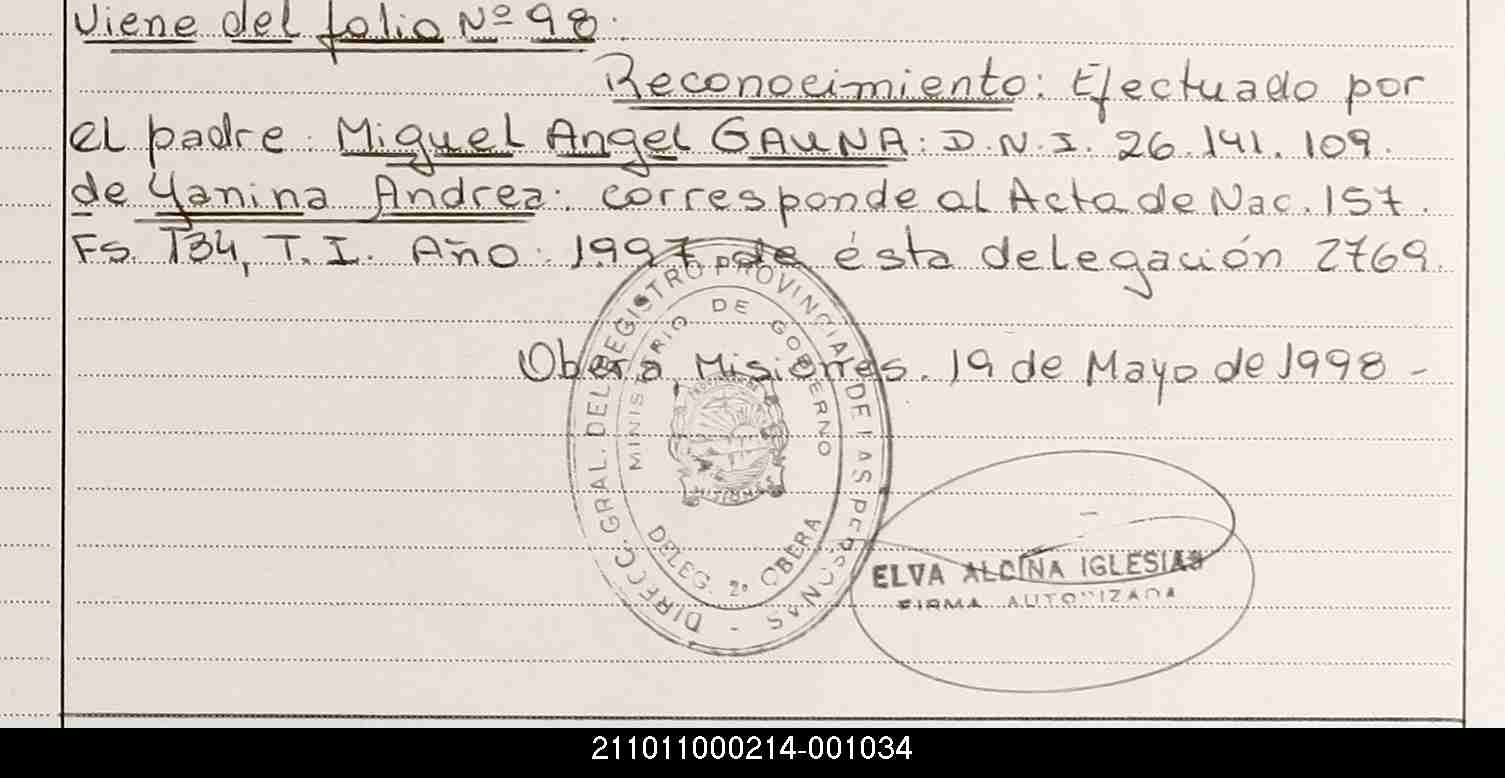 Viene del folio Nº 98.
Reconocimiento: Efectuado por
el padre: Miguel Angel GAUNA: D.N.I. 26.141.109.
de Yanina Andrea: corresponde al Acta de Nac. 157.
Fs. 134, T.I. Año: 1997 de ésta delegación 2769.
Oberá, Misiones. 19 de Mayo de 1998 -
DIRECC. GRAL. DEL REGISTRO PROVINCIAL DE LAS PERSONAS -
MINISTERIO DE GOBIERNO
MISIONES
DELEG. 2º OBERA
ELVA ALCINA IGLESIAS
FIRMA AUTORIZADA
211011000214-001034